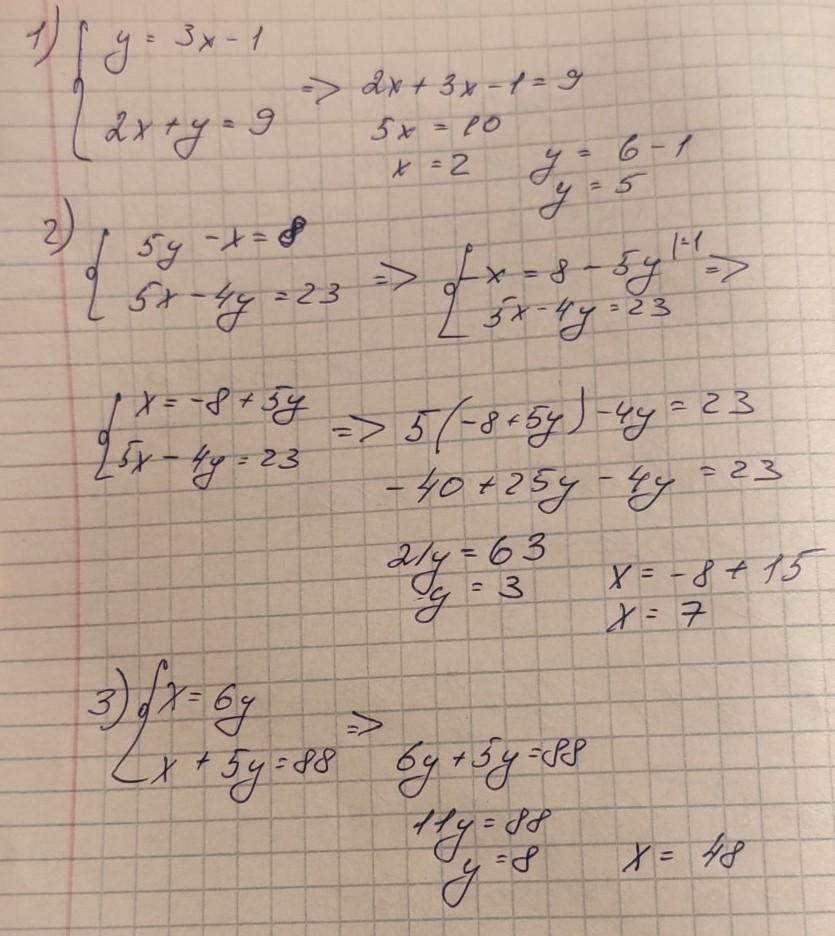 1) { y = 3x - 1
2x + y = 9 => 2x + 3x - 1 = 9
5x = 10
x = 2
y = 6 - 1
y = 5
2) { 5y - x = 8
5x - 4y = 23 => { -x = 8 - 5y |·-1
5x - 4y = 23 =>
{ x = -8 + 5y
5x - 4y = 23 => 5(-8 + 5y) - 4y = 23
-40 + 25y - 4y = 23
21y = 63
y = 3
x = -8 + 15
x = 7
3) { x = 6y
x + 5y = 88 => 6y + 5y = 88
11y = 88
y = 8
x = 48